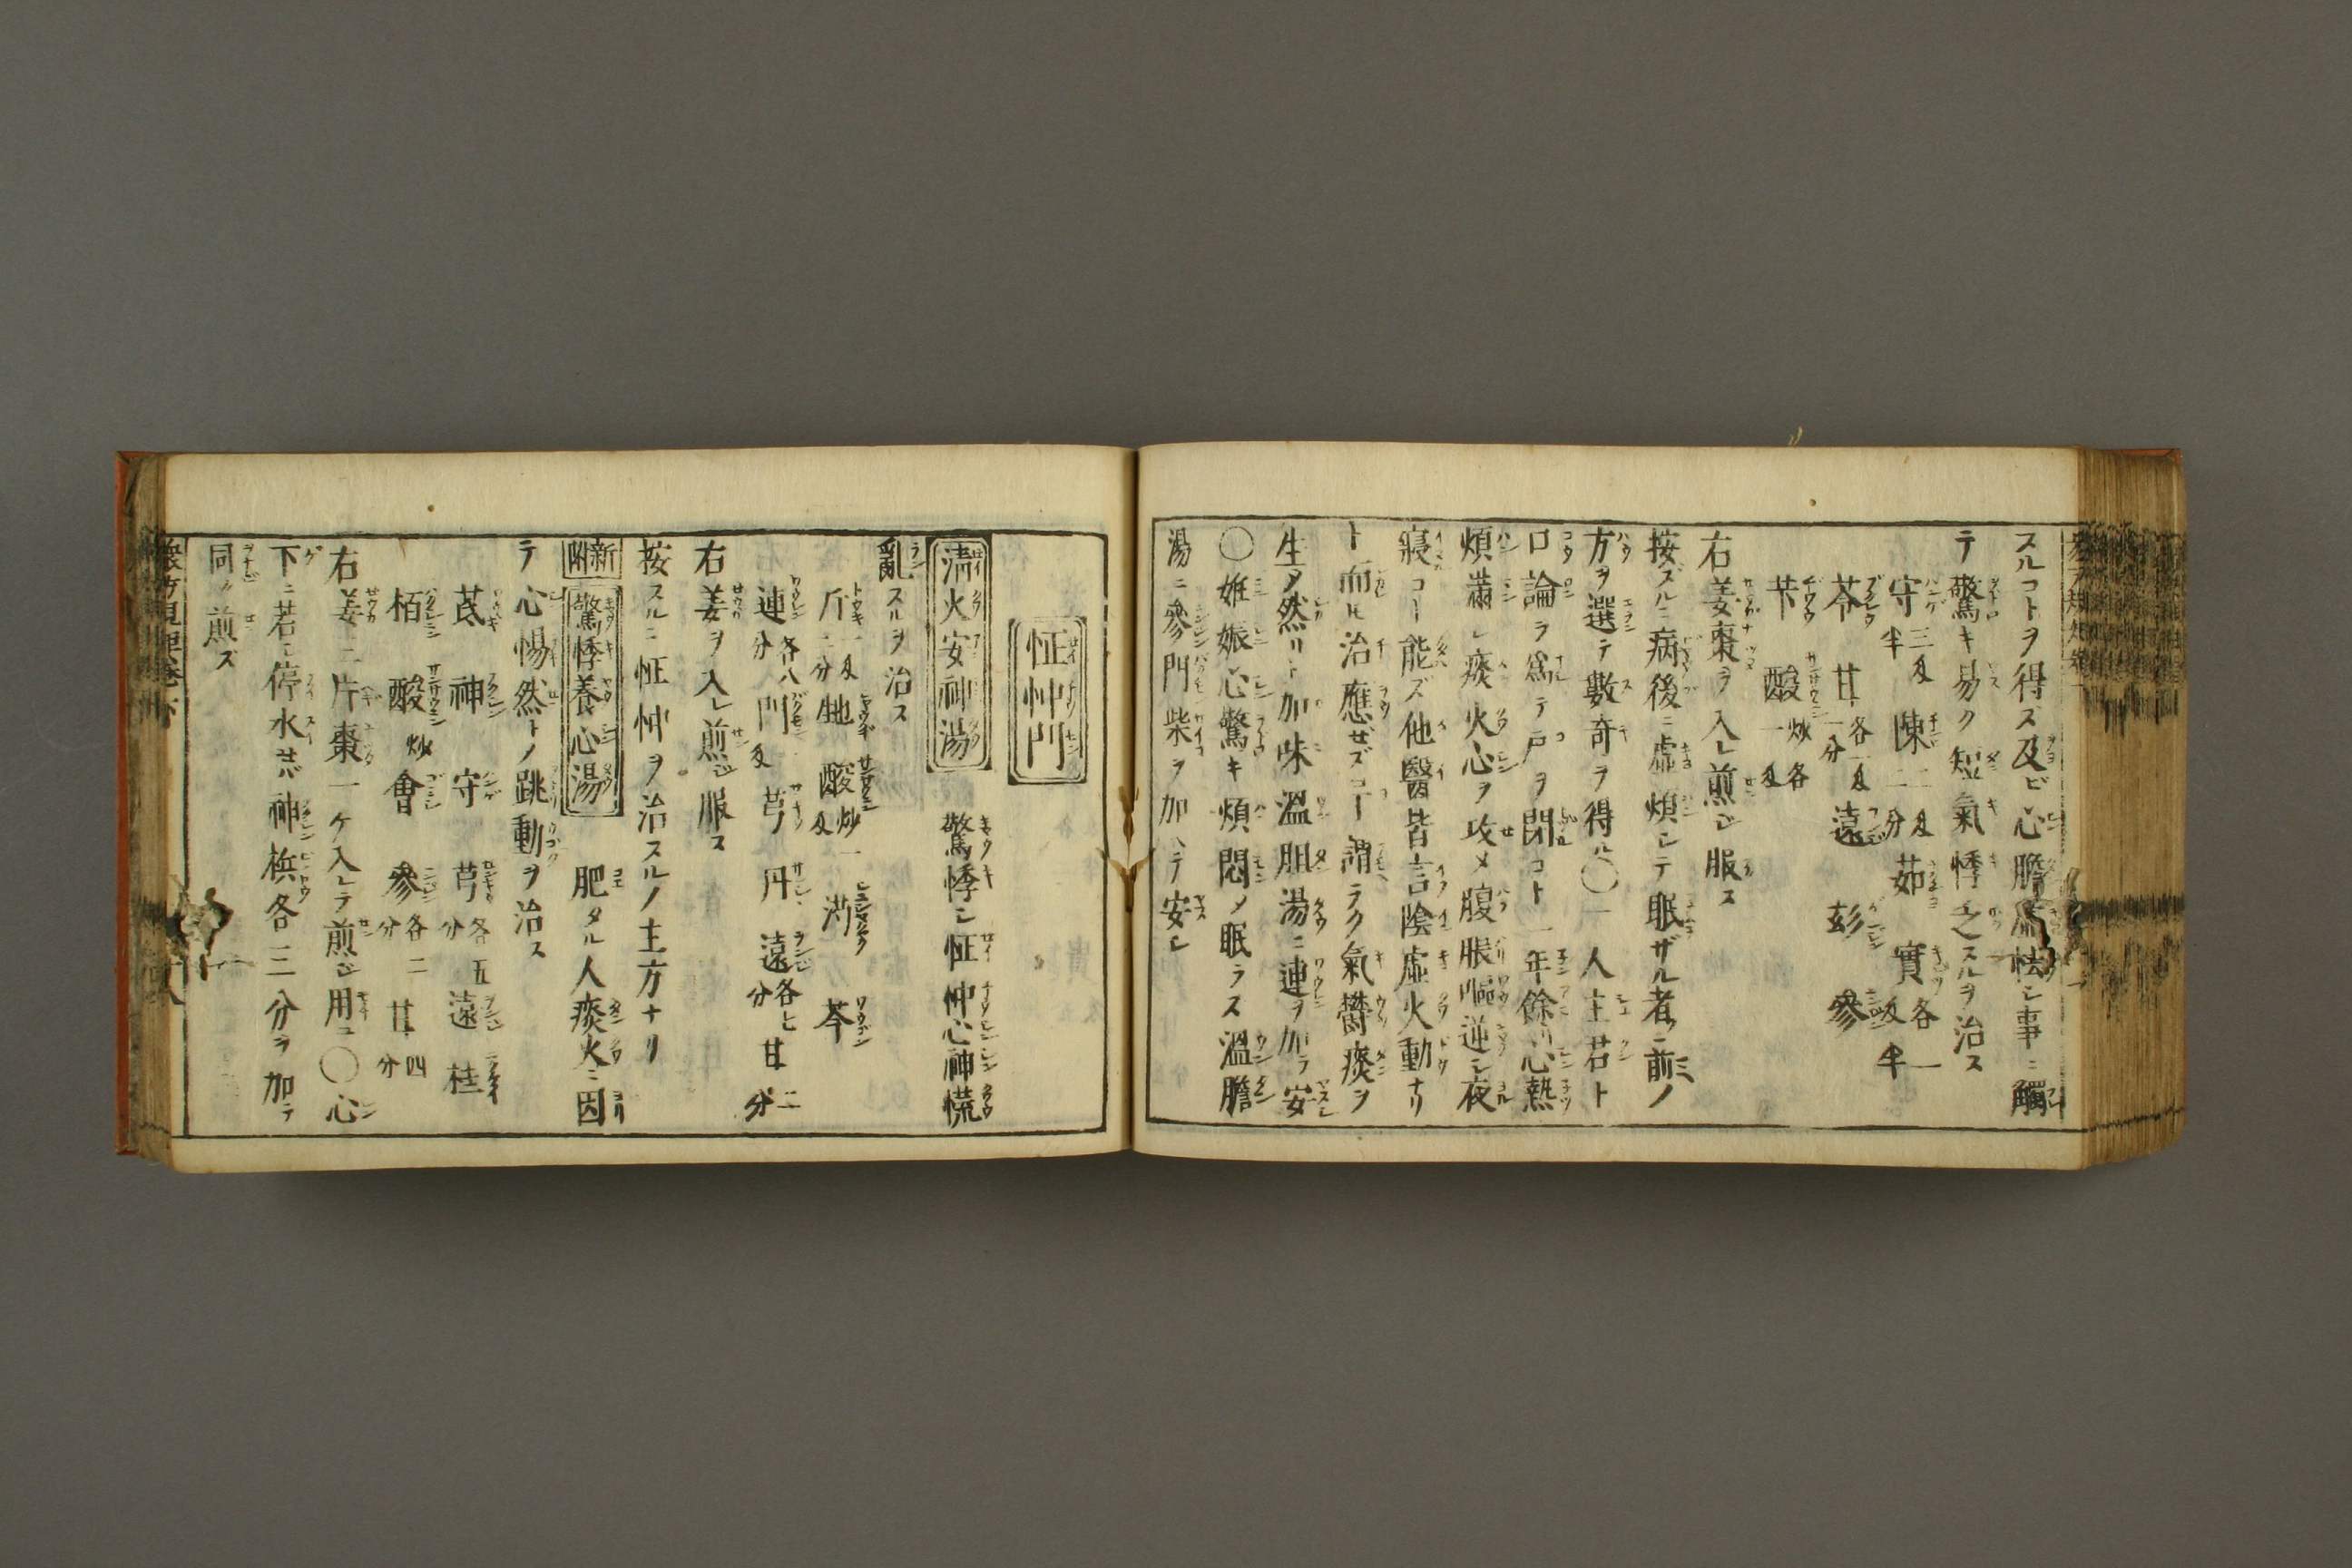 スルコトヲ得ス及ビ心膽虛怯シ事ニ觸
テ驚キ易ク短氣悸乏スルヲ治ス
守三戔半 陳二戔二分 茹 實各一戔半
芩 甘各一戔一分 遠 玄 參
芐 酸炒各一戔
右姜棗ヲ入レ煎ジ服ス
按ズルニ病後ニ虛煩シテ眠ザル者ニ前ノ
方ヲ選テ數奇ヲ得ル〇一人主君ト
口論ヲ爲テ戸ヲ閉コト一年餘リ心熱
煩滿シ痰火心ヲ攻メ腹脹嘔逆シ夜
寢コー能ズ他醫皆言陰虛火動ナリ
ト而ルニ治應ぜズコー謂ラク氣欝痰ヲ
生ノ然リト加味溫胆湯ニ連ヲ加ヲ安
〇姙娠心驚キ煩悶メ眠ラス溫膽
湯ニ參門柴ヲ加ヘテ安シ
怔忡門
淸火安神湯 驚悸シ怔忡心神慌
亂スルヲ治ス
斤一戔二分 地 酸炒一戔 芍 芩
連各八分 門戔 芎 丹 遠各七分 甘二分
右姜ヲ入レ煎ジ服ス
按スルニ怔忡ヲ治スルノ主方ナリ
新附 驚悸養心湯 肥タル人痰火ニ因
テ心惕然トノ跳動ヲ治ス
芪 神 守 芎各五分 遠 桂
栢 酸炒 會 參各二分 甘四分
右姜二片棗一ケ入レテ煎ジ用ユ〇心
下ニ若シ停水セバ神梹各三分ヲ加テ
同ク煎ズ